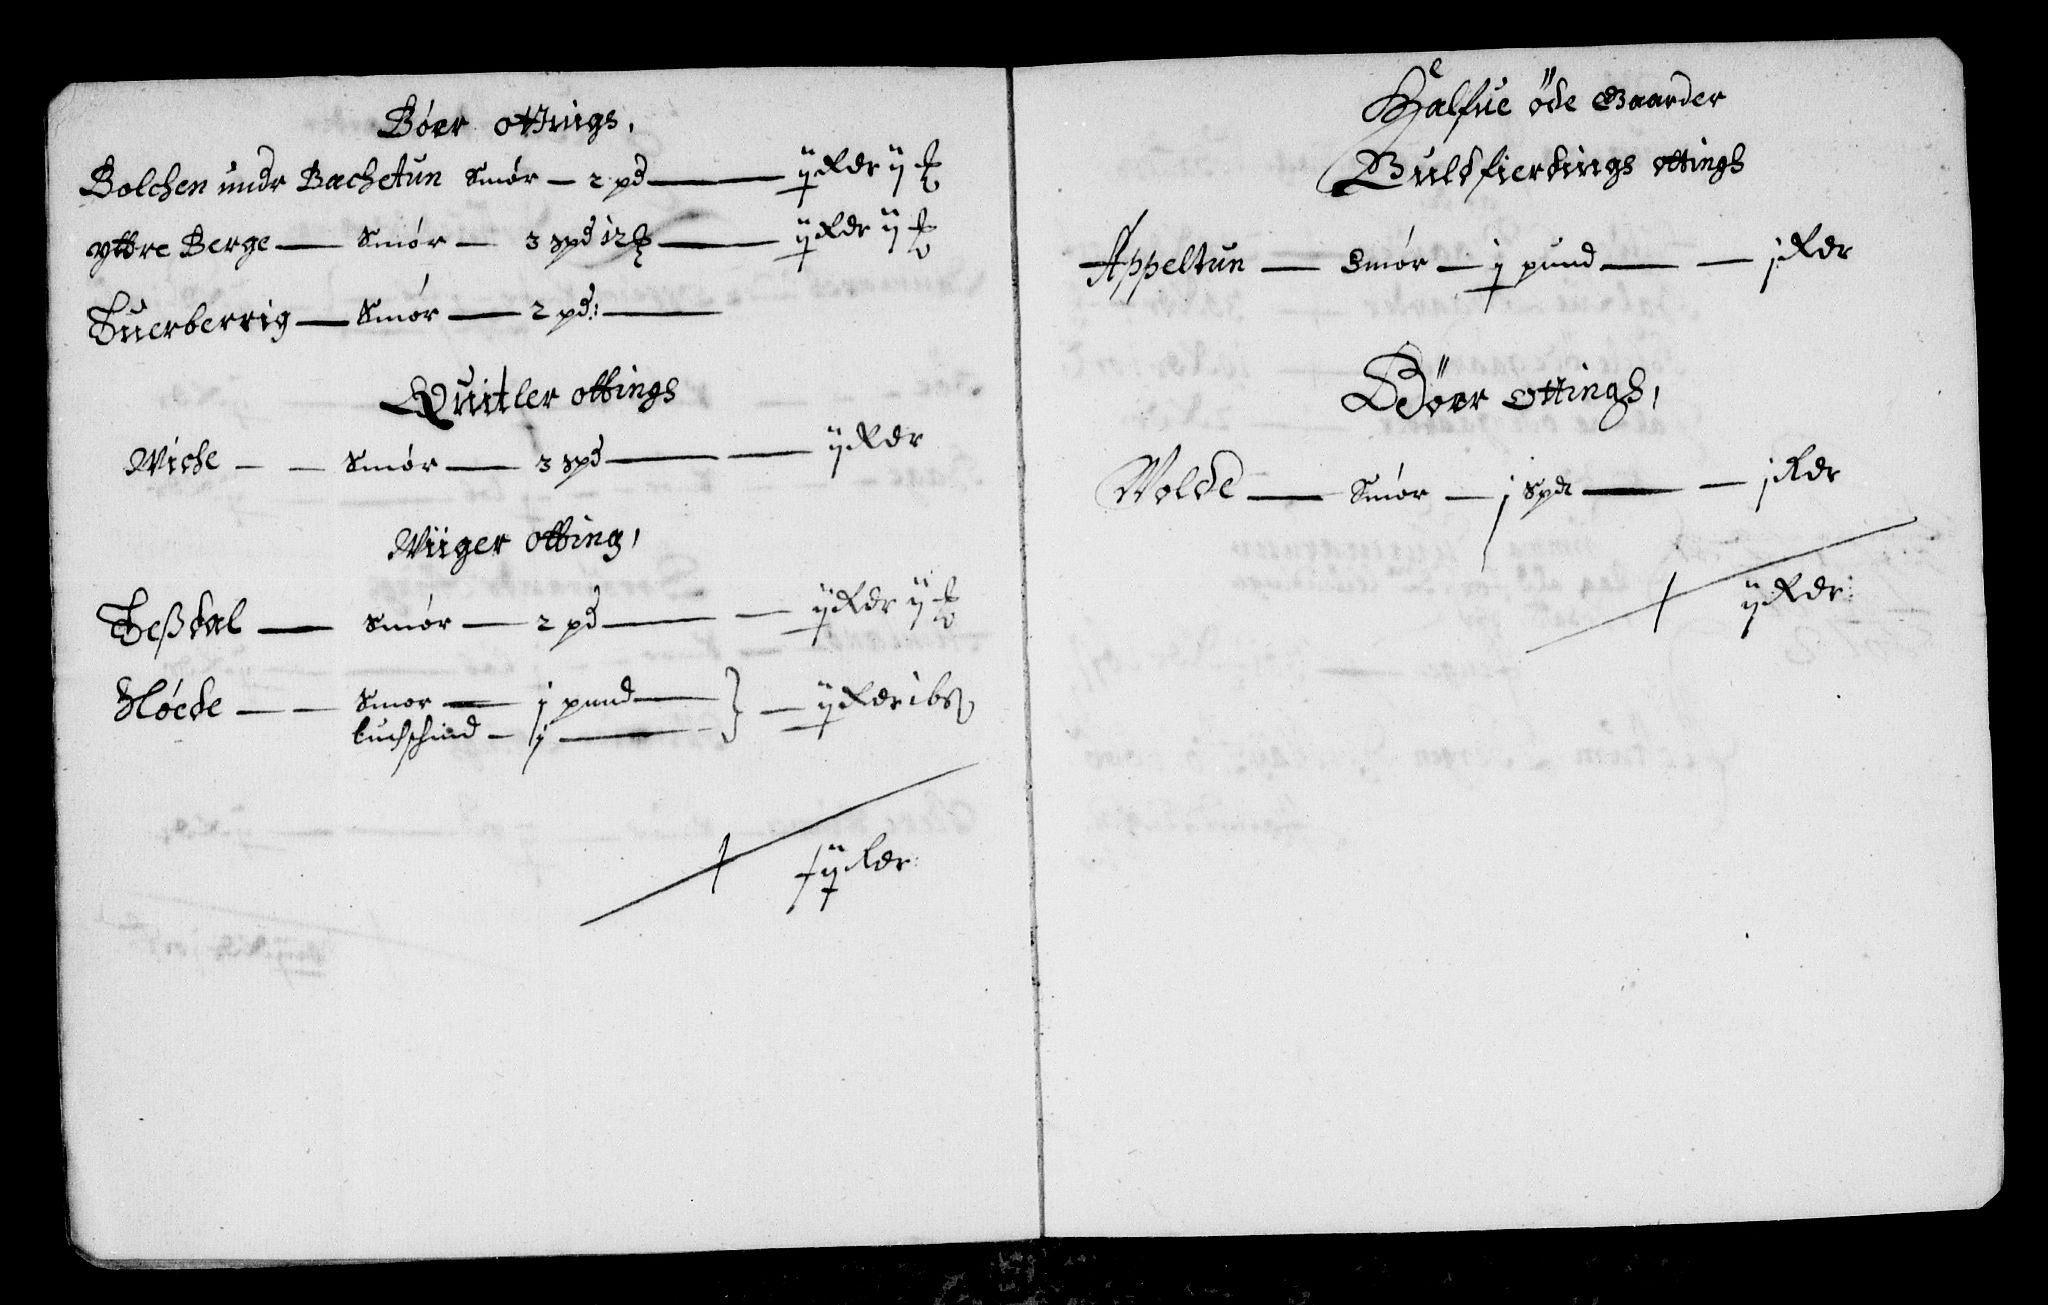 Böer ottings,
Bolchen undr Bachetun Smør — 2 pd — ij Rdr ij
yttre Berge — Smør — 3 spd 12 — ij Rdr ij
Tuerberrig — Smør — 2 pd:
Quitler ottings
Wiche — Smør — 3 spd — ij Rdr
Wiiger otting,
Teßdal — Smør — 2 pd — ij Rdr ij
Nöede — Smør — j pund
buchschind — j } — ij Rdr
Rdr:
Halfue öde Gaarder
Buldfierdings ottings
Appeltun — Smør — j pund — j Rdr
Böer ottings,
Wolde — Smør — j Spd — j Rdr
ij Rdr: